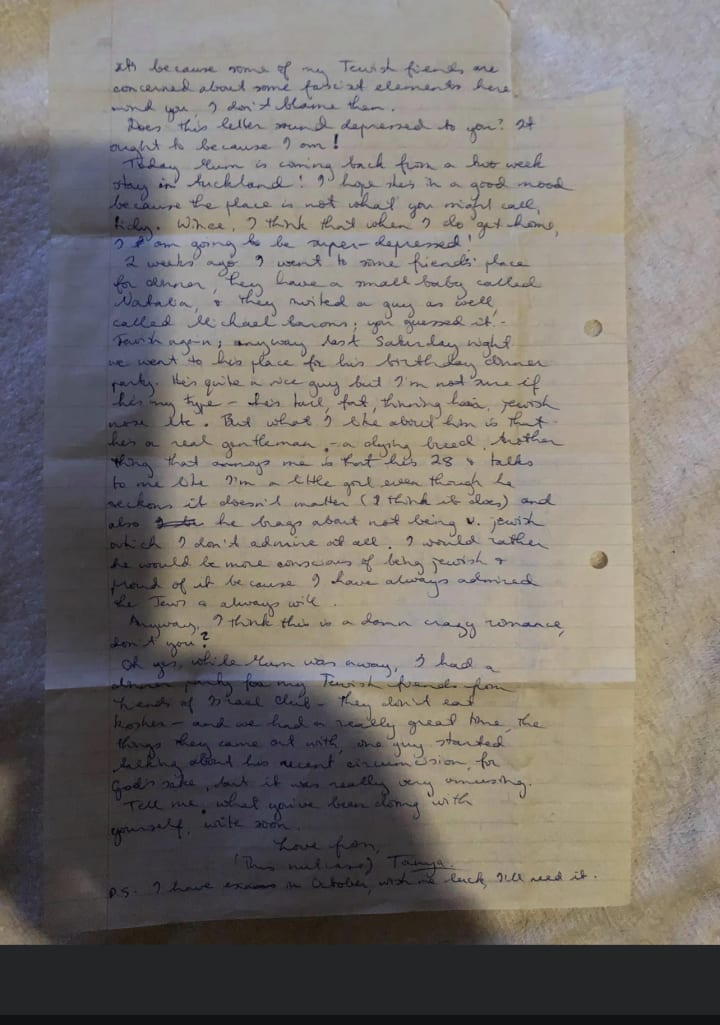 its because some of my Jewish friends are
concerned about some fascist elements here
mind you, I don't blame them.
Does this letter sound depressed to you? It
ought to because I am!
Today Mum is coming back from a two week
stay in Auckland! I hope she's in a good mood
because the place is not what you might call,
tidy. Wince, I think that when I do get home,
I am going to be super-depressed!
2 weeks ago I went to some friends' place
for dinner, they have a small baby called
Natalia, & they invited a guy as well,
called Michael; you guessed it -
Jewish again; anyway last Saturday night
we went to his place for his birthday dinner
party. He's quite a nice guy but I'm not sure if
he's my type - he's tall, fat, thinning hair, jewish
nose etc. But what I like about him is that
he's a real gentleman - a dying breed. Another
thing that annoys me is that he's 28 & talks
to me like I'm a little girl even though he
reckons it doesn't matter (I think it does) and
also he brags about not being v. jewish
which I don't admire at all. I would rather
he would be more conscious of being jewish &
proud of it because I have always admired
the Jews & always will.
Anyway, I think this is a damn crazy romance,
don't you?
Oh yes, while Mum was away, I had a
dinner party for my Jewish friends from
Friends of Israel Club - they don't eat
kosher - and we had a really great time, the
things they came out with, one guy started
talking about his recent circumcision, for
God's sake, but it was really very amusing.
Tell me, what you've been doing with
yourself, write soon.
Love from,
(This) Tanya.
P.S. I have exams in October, wish me luck, I'll need it.